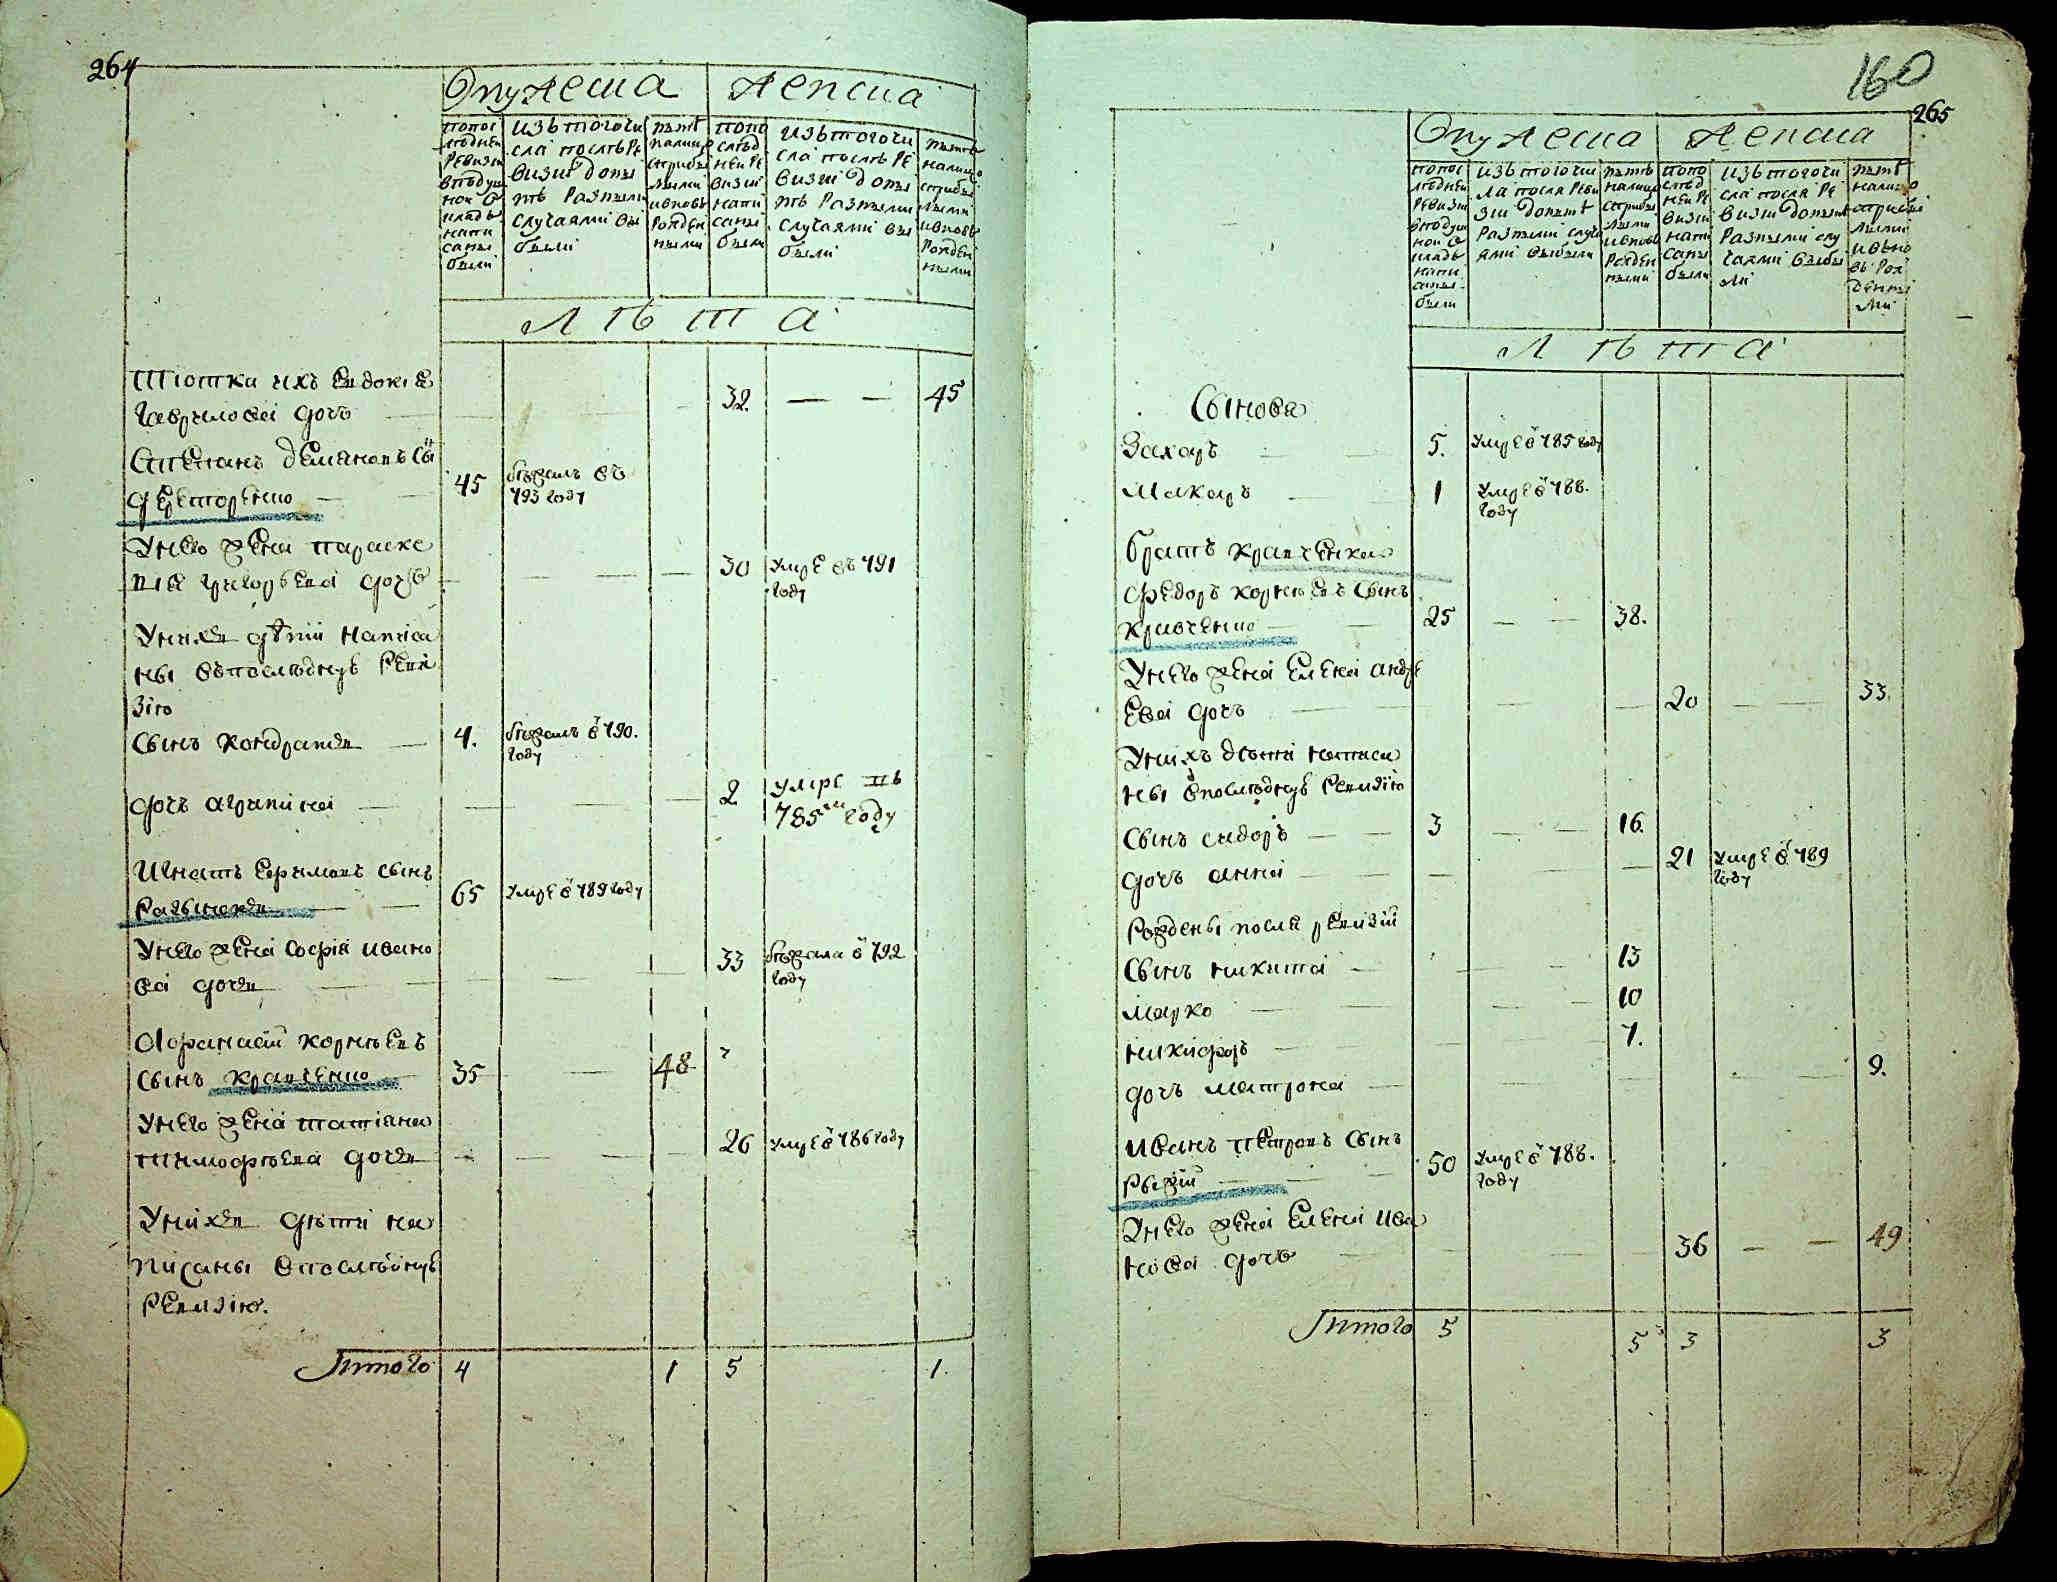 264
О мужеска женска
По пос
лѣдней
Ревизіи
в подуш
ной О
кладъ
напи
саны
были
изъ того чи
сла послѣ Ре
визіи до ны
нѣ разными
случаями вы
были
нынѣ
налицо
с прибы
лыми
и вновь
рожден
ными
По по
слѣд
ней Ре
визіи
напи
саны
были
изъ того чи
сла послѣ Ре
визіи до ны
нѣ разными
случаями вы
были
нынѣ
налицо
с прибы
лыми
и вновь
рожден
ными
Л ѣ т а
Тіотка ихъ Евдокіе
Гаврилова дочъ 32. 45
Степанъ Демяновъ сы
45 бѣжалъ въ
793 году
У него жена Параске
вія Григорьева дочъ 30 умре въ 791
году
У нихъ дѣти написа
ны въ последнуѣ Реви
зію
Сынъ Кондратъ 4. бѣжалъ в 790.
году
дочъ Агрипина 2 умре въ
785м году
Игнатъ Ефимовъ сынъ
65 умре в 789 году
У него жена Софія Ивано
ва дочъ 33 бѣжала в 792
году
Афанасий Корнѣевъ
сынъ Кравченко 35 48
У него жена Татіана
Тимофѣева дочъ 26 умре в 786 году
У нихъ дѣти на
писаны в последнуѣ
Ревизію.
Итого 4 1 5 1.
160
265
О мужеска женска
По пос
лѣдней
Ревизіи
в подуш
ной О
кладъ
напи
саны
были
изъ того чи
ла посля Реви
зіи до нынѣ
разными случа
ями выбыли
нынѣ
налицо
с прибы
лыми
и вновь
рожден
ными
По по
слѣд
ней Ре
визіи
напи
саны
были
изъ того чи
сла посля Ре
визіи до нынѣ
разными слу
чаями выбы
ли
нынѣ
налицо
с прибы
лыми
и вно
въ рож
денны
ми
Л ѣ т а
Сынова
Захаръ 5. умре в 785 году
Макаръ 1 умре в 788.
году
братъ Кравченка
Федоръ Корнѣевъ сынъ
Кравченко 25 38.
У него жена Елена Андре
ева дочъ 20 33.
У нихъ дѣти написа
ны в последнуѣ Ревизію
Сынъ Сидоръ 3 16.
дочъ Анна 21 умре в 789
году
Рождены после ревизій
Сынъ Никита 13
Марко 10
Никифоръ 7.
дочъ Матрона 9.
Иванъ Петровъ сынъ
Рыжій 50 умре в 788.
году
У него жена Елена Ива
нова дочъ 36 49
Итого 5 5 3 3